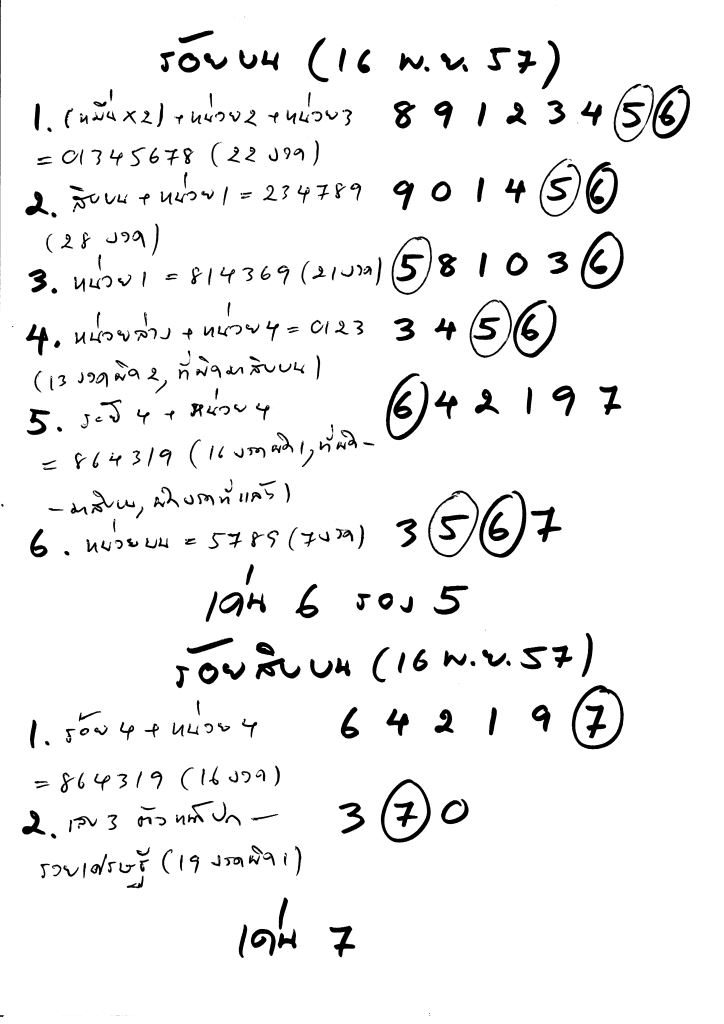 ร้อยบน (16 พ.ย. 57)
1. (หมื่น x2) + หน่วย2 + หน่วย3 8 9 1 2 3 4 5 6
= 01345678 (22 งวด)
2. สิบบน + หน่วย1 = 234789 9 0 1 4 5 6
(28 งวด)
3. หน่วย1 = 814369 (21งวด) 5 8 1 0 3 6
4. หน่วยล่าง + หน่วย4 = 0123 3 4 5 6
(13 งวดผิด 2, ที่ผิดมาสิบบน)
5. 4 + หน่วย4 6 4 2 1 9 7
= 864319 (16 งวดผิด1, ที่ผิด-
-มาสิบบน, ผิดงวดที่แล้ว)
6. หน่วยบน = 5789 (7งวด) 3 5 6 7
เด่น 6 รอง 5
ร้อยสิบบน (16 พ.ย. 57)
1. ร้อย 4 + หน่วย 4 6 4 2 1 9 7
= 864319 (16 งวด)
2. เลข 3 ตัวหน้าปก - 3 7 0
รวยเศรษฐี (19 งวดผิด1)
เด่น 7